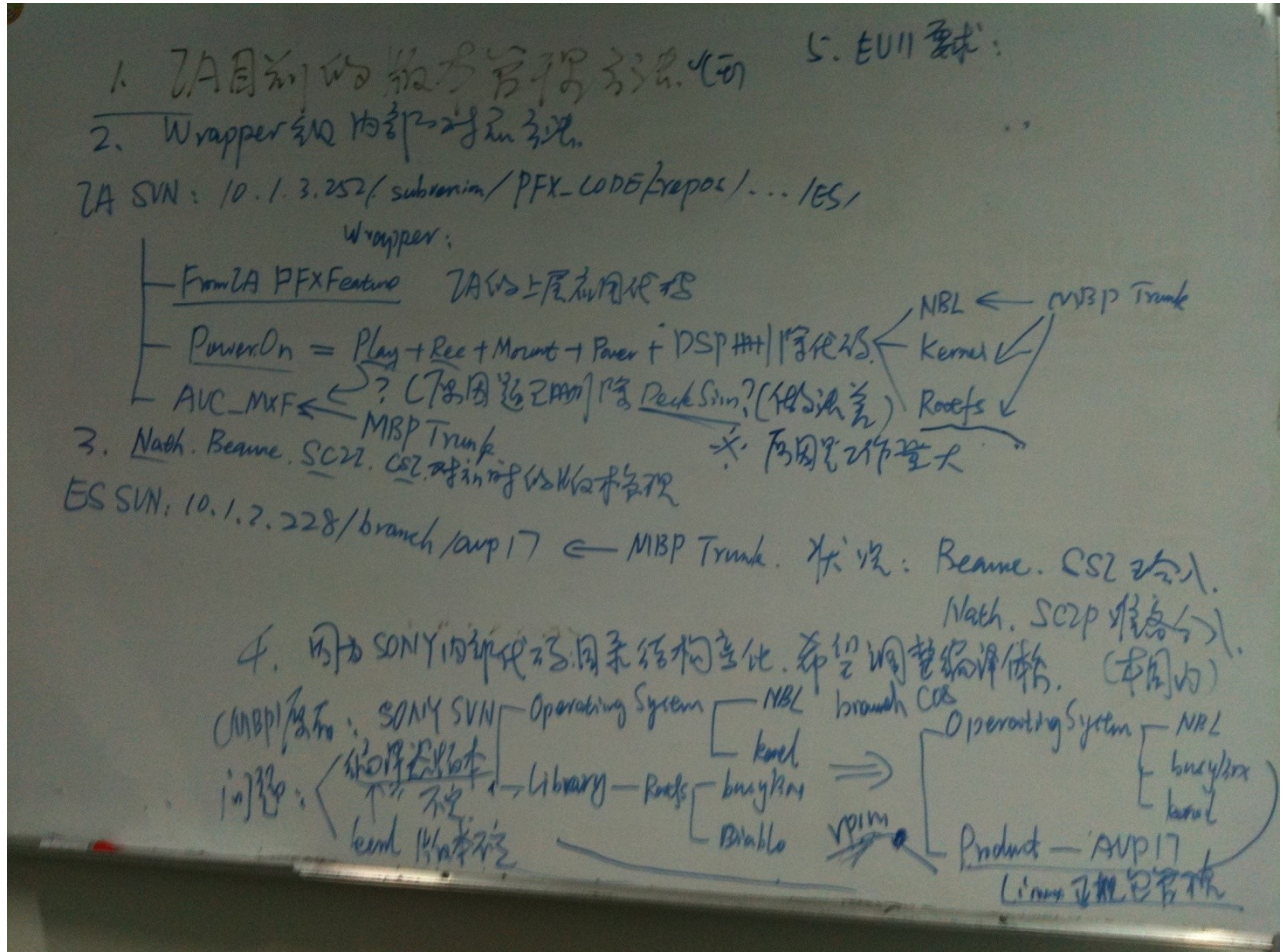 1. ZA目前的版本管理方法
5. EU11 要求:
2. Wrapper 内部对应方法
ZA SVN: 10.1.3.252/subversion/PFX_CODE/repos/.../ES/
Wrapper:
FromZA PFXFeature ZA的上层应用代码
PowerOn = Play+Rec+Mount+Power+DSP 除代码
NBL ← MBP Trunk
Kernel
Rootfs
AVC_MXF ←
? 除DeckSim?
MBP Trunk
※ 原因是工作量大
3. Nath. Beaune. SC2P. CS2. 的版本管理
ES SVN: 10.1.2.228/branch/avp17 ← MBP Trunk. 状况: Beaune. CS2 已合入.
Nath. SC2P 准备合入.
(本周内)
4. 因为SONY内部代码目录结构变化. 希望调整编译体系.
(MBP) SONY SVN
Operating System
NBL
kernel
Library — Rootfs
busybox
Diablo
问题:
编译器版本不定
kernel 版本不定
branch
⇒
rpim
Operating System
NBL
busybox
kernel
Product — AVP17
Linux正规包管理